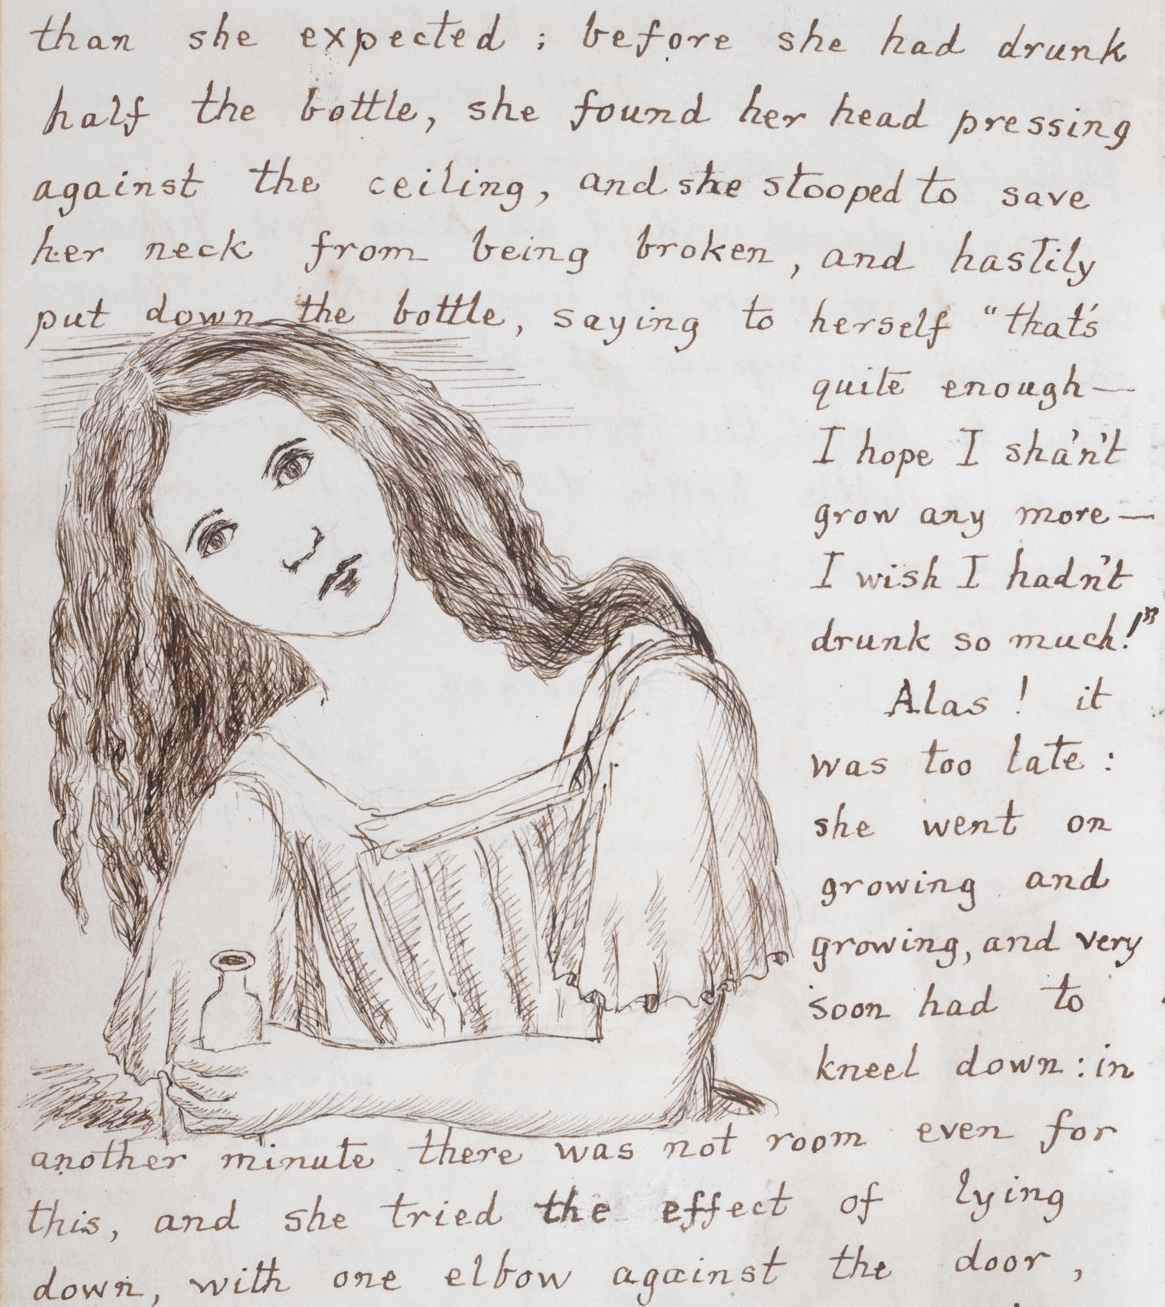 than she expected ; before she had drunk
half the bottle, she found her head pressing
against the ceiling, and she stooped to save
her neck from being broken, and hastily
put down the bottle, saying to herself "that's
quite enough—
I hope I sha'n't
grow any more—
I wish I hadn't
drunk so much!"
Alas ! it
was too late :
she went on
growing and
growing, and very
soon had to
kneel down : in
another minute there was not room even for
this, and she tried the effect of lying
down, with one elbow against the door,